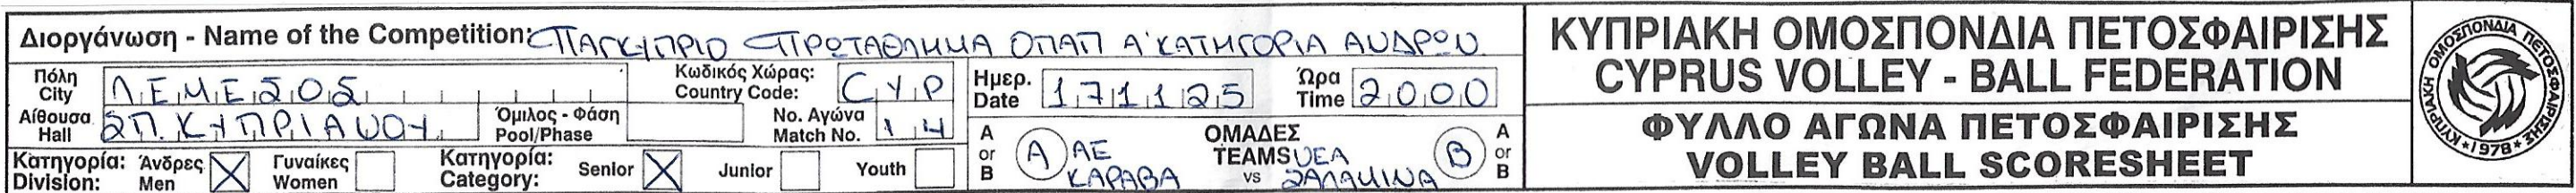 Διοργάνωση - Name of the Competition: ΠΑΓΚΥΠΡΙΟ ΠΡΩΤΑΘΛΗΜΑ ΟΠΑΠ Α' ΚΑΤΗΓΟΡΙΑ ΑΝΔΡΩΝ
Πόλη City ΛΕΜΕΣΟΣ
Κωδικός Χώρας: Country Code: CYP
Αίθουσα Hall ΣΠ. ΚΥΠΡΙΑΝΟΥ
Όμιλος - Φάση Pool/Phase
No. Αγώνα Match No. 14
Κατηγορία: Division: Άνδρες Men X Γυναίκες Women
Κατηγορία: Category: Senior X Junior Youth
Ημερ. Date 171125
Ώρα Time 2000
A or B A ΑΕ ΚΑΡΑΒΑ
ΟΜΑΔΕΣ TEAMS vs
ΝΕΑ ΣΑΛΑΜΙΝΑ B A or B
ΚΥΠΡΙΑΚΗ ΟΜΟΣΠΟΝΔΙΑ ΠΕΤΟΣΦΑΙΡΙΣΗΣ
CYPRUS VOLLEY - BALL FEDERATION
ΦΥΛΛΟ ΑΓΩΝΑ ΠΕΤΟΣΦΑΙΡΙΣΗΣ
VOLLEY BALL SCORESHEET
ΚΥΠΡΙΑΚΗ ΟΜΟΣΠΟΝΔΙΑ ΠΕΤΟΣΦΑΙΡΙΣΗΣ
*1978*